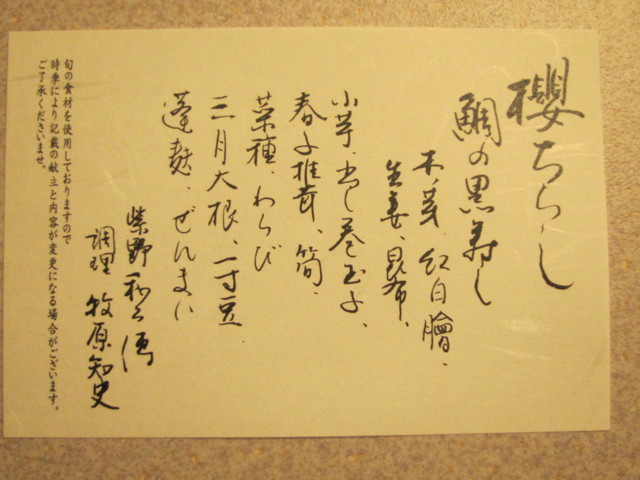 櫻ちらし
鯛の黒寿し
木ノ芽、紅白膾、
生姜、昆布、
小芋、出し巻玉子、
春子椎茸、筍、
菜穂、わらび
三月大根、一寸豆、
蓬麩、ぜんまい
紫野和久傳
調理 牧原知史
旬の食材を使用しておりますので
時季により記載の献立と内容が変更になる場合がございます。
ご了承くださいませ。